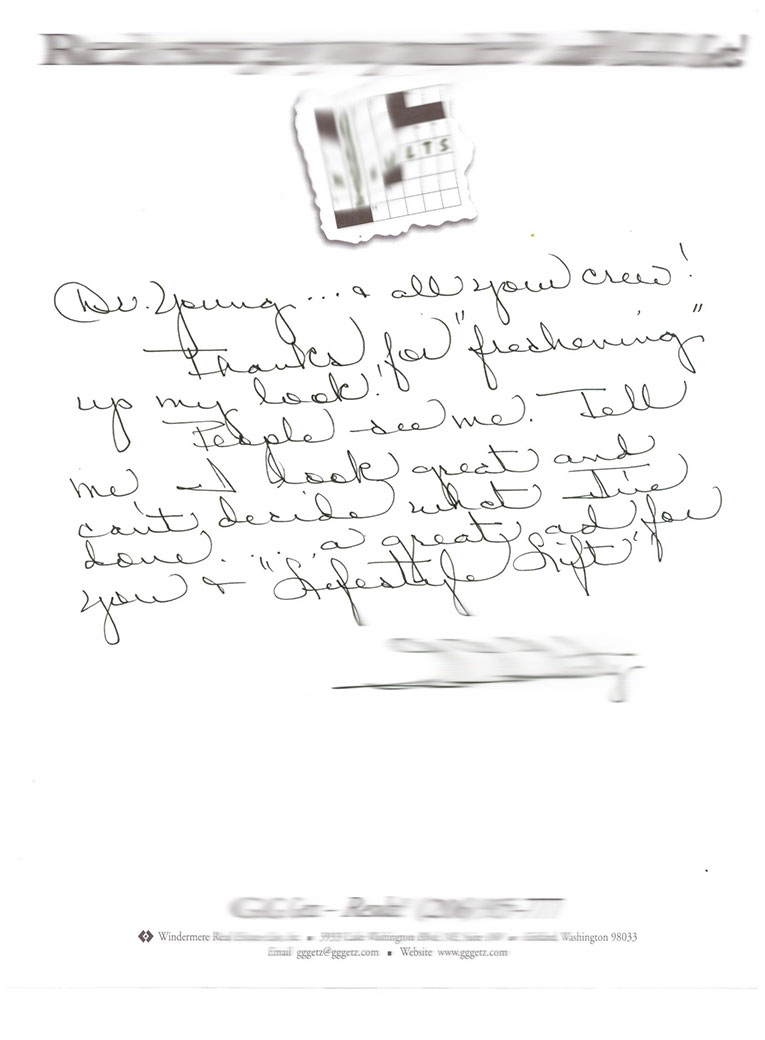 LTS
Dr. Young ... & all your crew!
Thanks for "freshening"
up my look!
People see me. Tell
me I look great and
can't decide what I've
done. ... a great ad for
you & "Lifestyle Lift"!
Windermere Washington 98033
Email gggetz@gggetz.com ■ Website www.gggetz.com